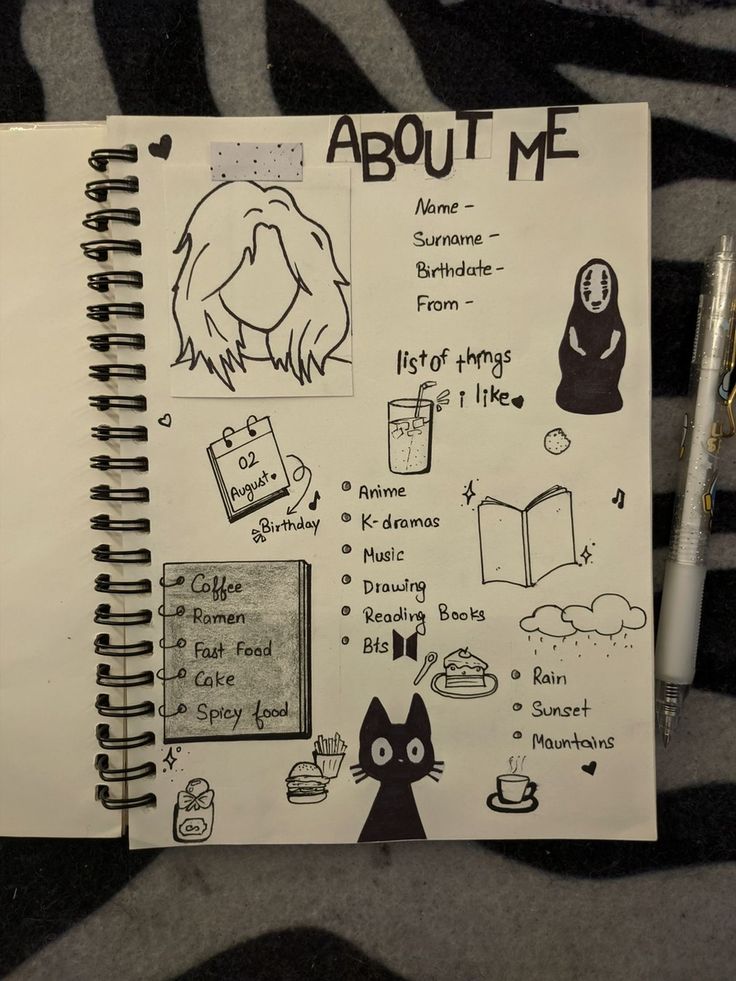 ABOUT ME
Name -
Surname -
Birthdate -
From -
list of things
i like
02
August
Birthday
Anime
K-dramas
Music
Drawing
Reading Books
Bts
Coffee
Ramen
Fast Food
Cake
Spicy food
Rain
Sunset
Mauntains